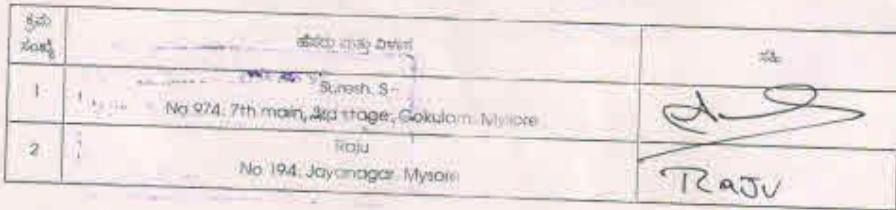 ಕ್ರಮ ಸಂಖ್ಯೆ
ಹೆಸರು ಮತ್ತು ವಿಳಾಸ
ಸಹಿ
1
Suresh. S
No 974, 7th main, 3rd stage, Gokulam, Mysore
2
Raju
No 194, Jayanagar, Mysore
RAJU